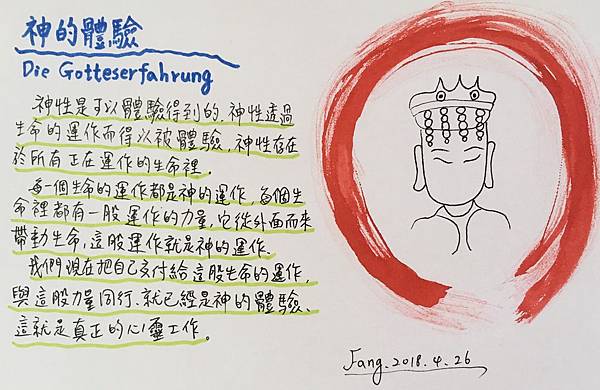 神的體驗
Die Gotteserfahrung
神性是可以體驗得到的,神性透過
生命的運作而得以被體驗,神性存在
於所有正在運作的生命裡。
每一個生命的運作都是神的運作,每個生
命裡都有一股運作的力量,它從外面而來
帶動生命,這股運作就是神的運作。
我們現在把自己交付給這股生命的運作,
與這股力量同行、就已經是神的體驗、
這就是真正的心靈工作。
Fang. 2018. 4. 26